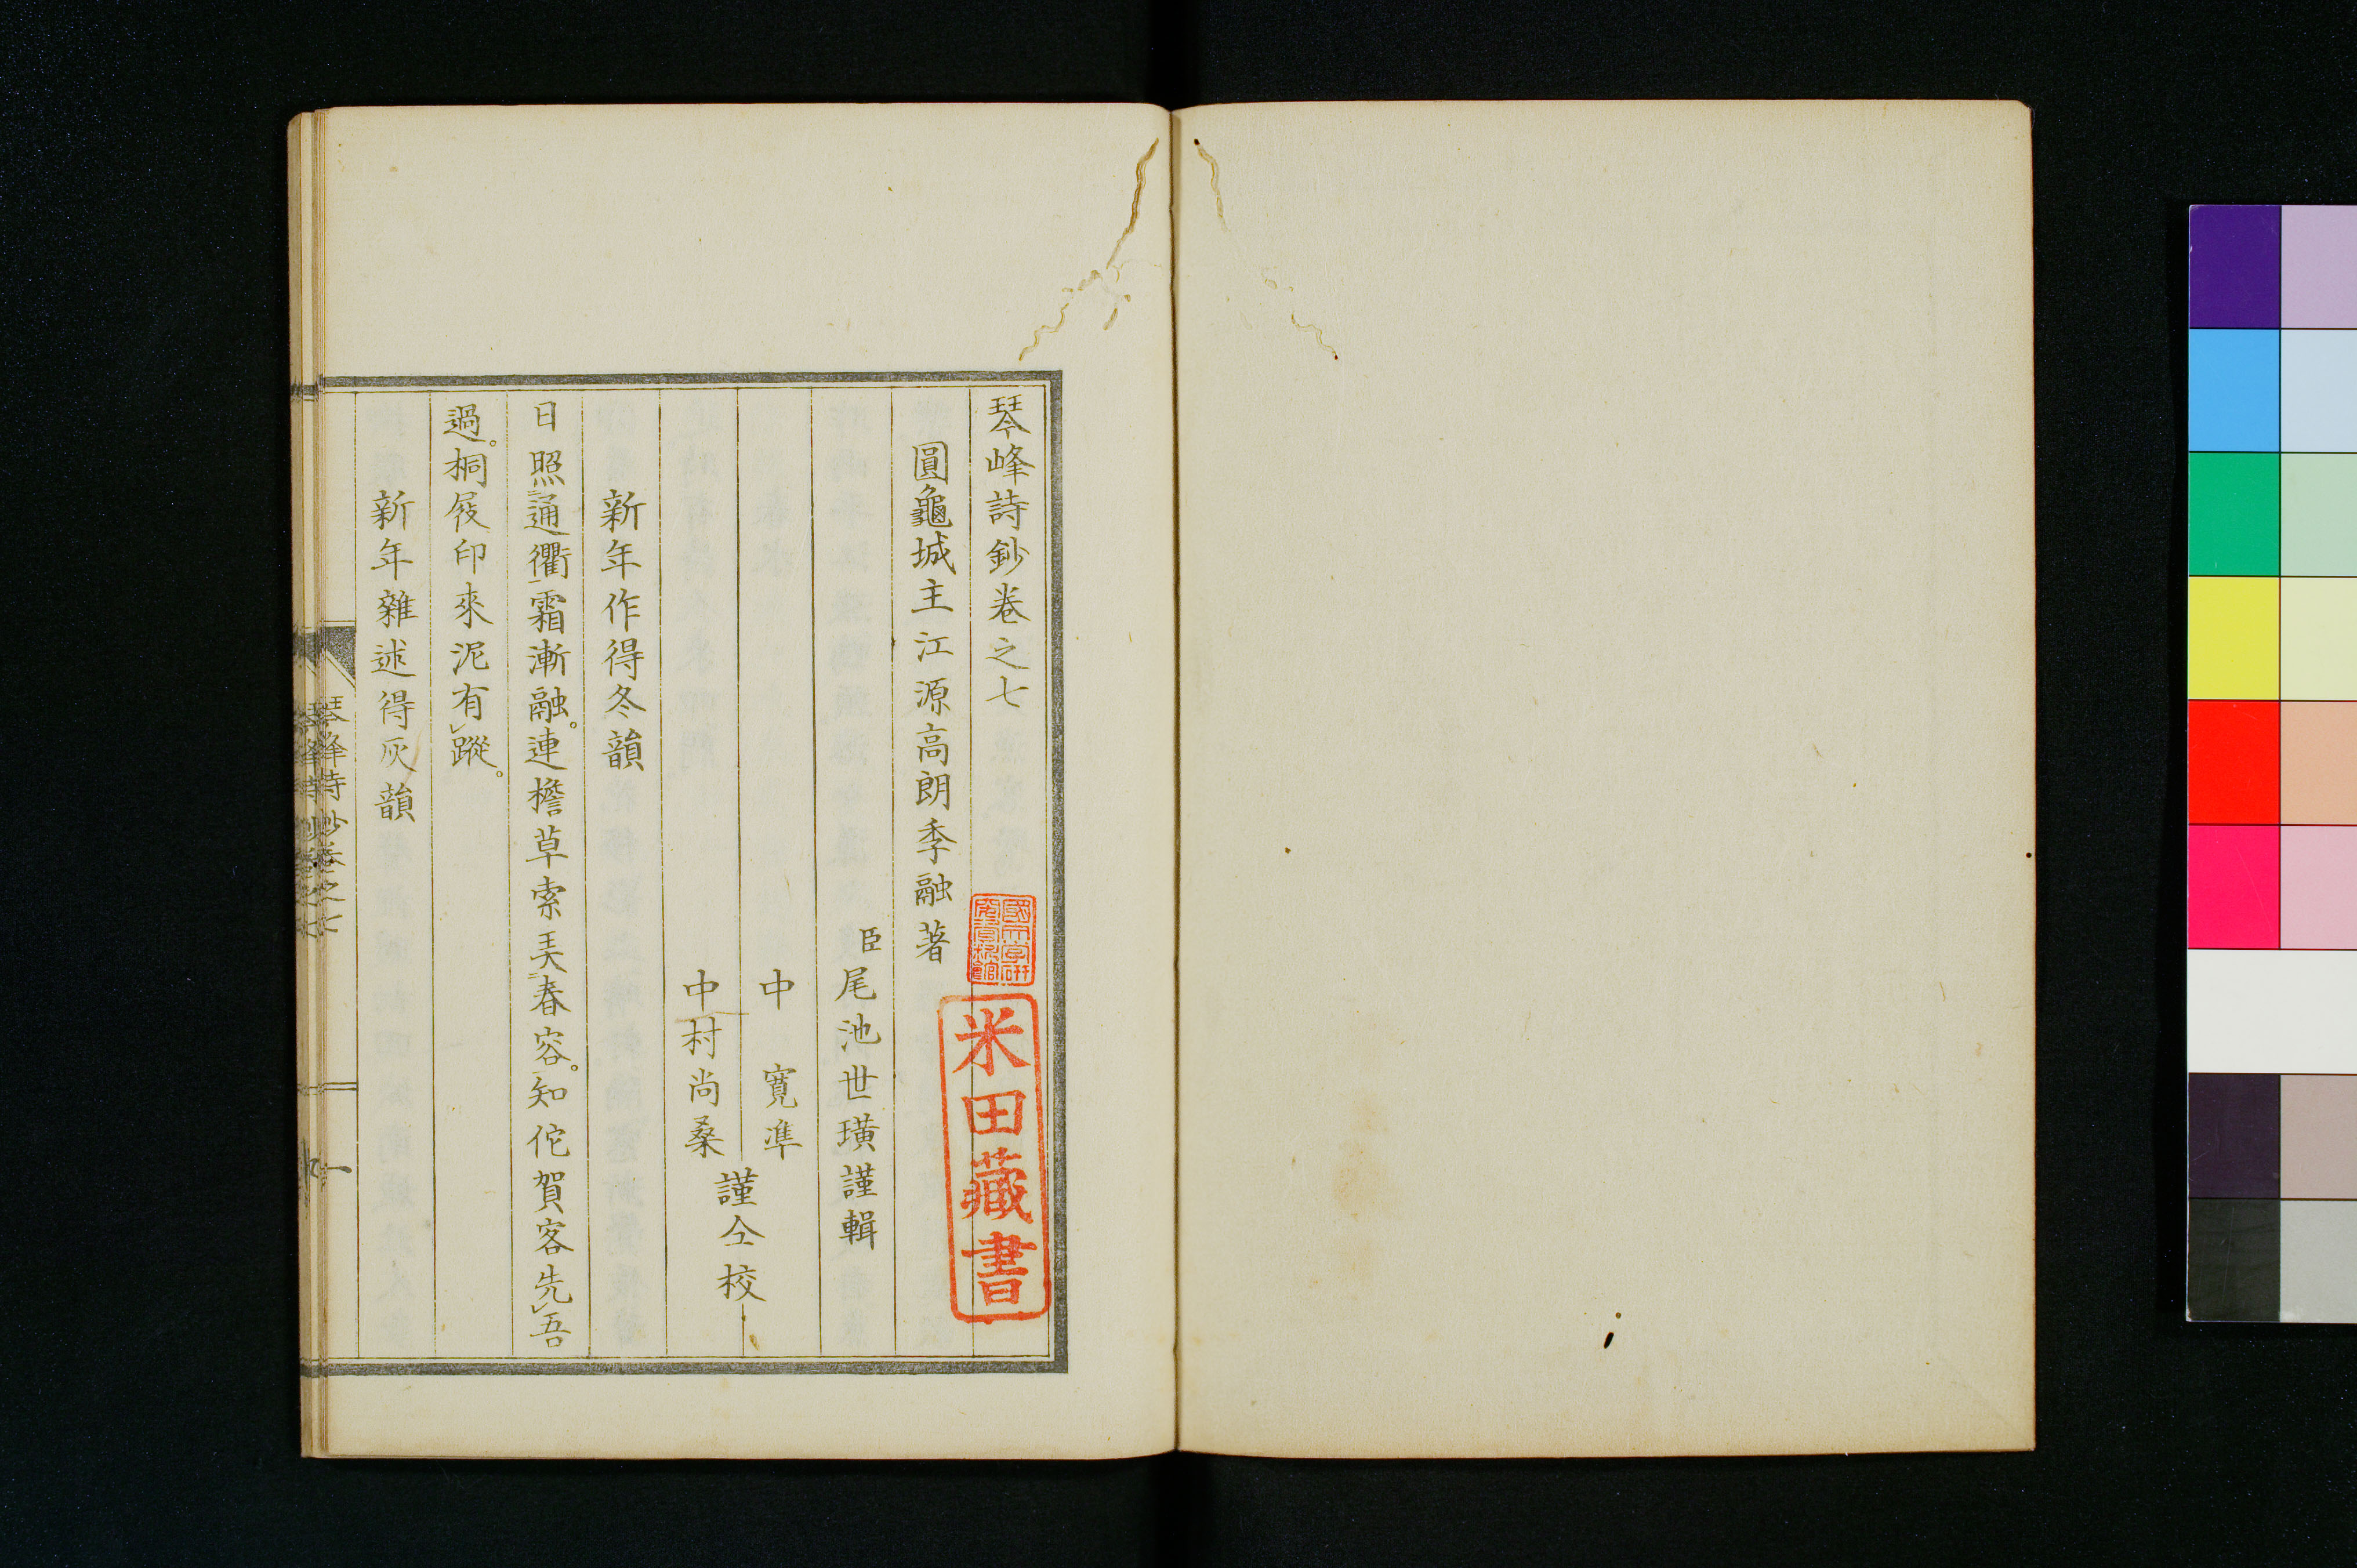 琴峰詩鈔卷之七
圓龜城主江源高朗季融著
臣尾池世璜謹輯
中 寬準
中村尚桑
謹仝校
新年作得冬韻
日照通衢霜漸融。連檐草索美春容。知佗賀客先吾
過。桐屐印來泥有蹤。
新年雜述得灰韻
琴峰詩鈔卷之七
一
米田藏書